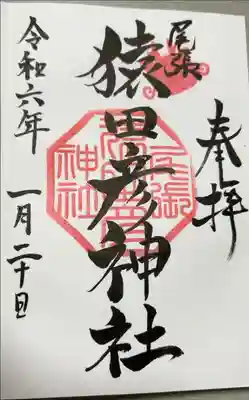 奉拝
尾張
猿田彦神社
令和六年
一月二十日